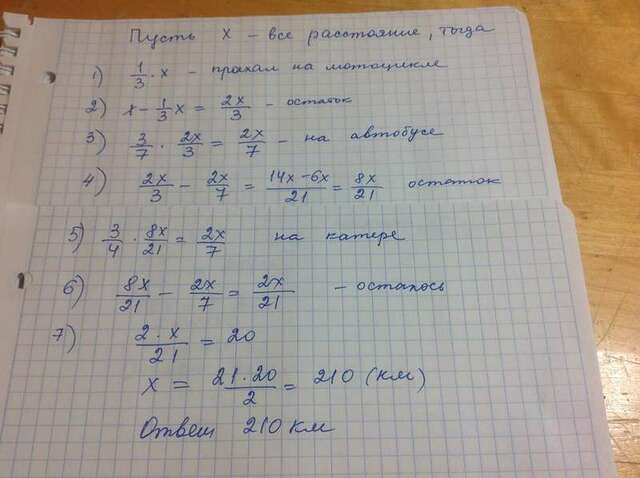 Пусть x – все расстояние, тогда
1) 1/3 · x – проехал на мотоцикле
2) x – 1/3 x = 2x/3 – остаток
3) 3/7 · 2x/3 = 2x/7 – на автобусе
4) 2x/3 – 2x/7 = 14x–6x/21 = 8x/21 остаток
5) 3/4 · 8x/21 = 2x/7 на катере
6) 8x/21 – 2x/7 = 2x/21 – осталось
7) 2·x/21 = 20
x = 21·20/2 = 210 (км)
Ответ 210 км